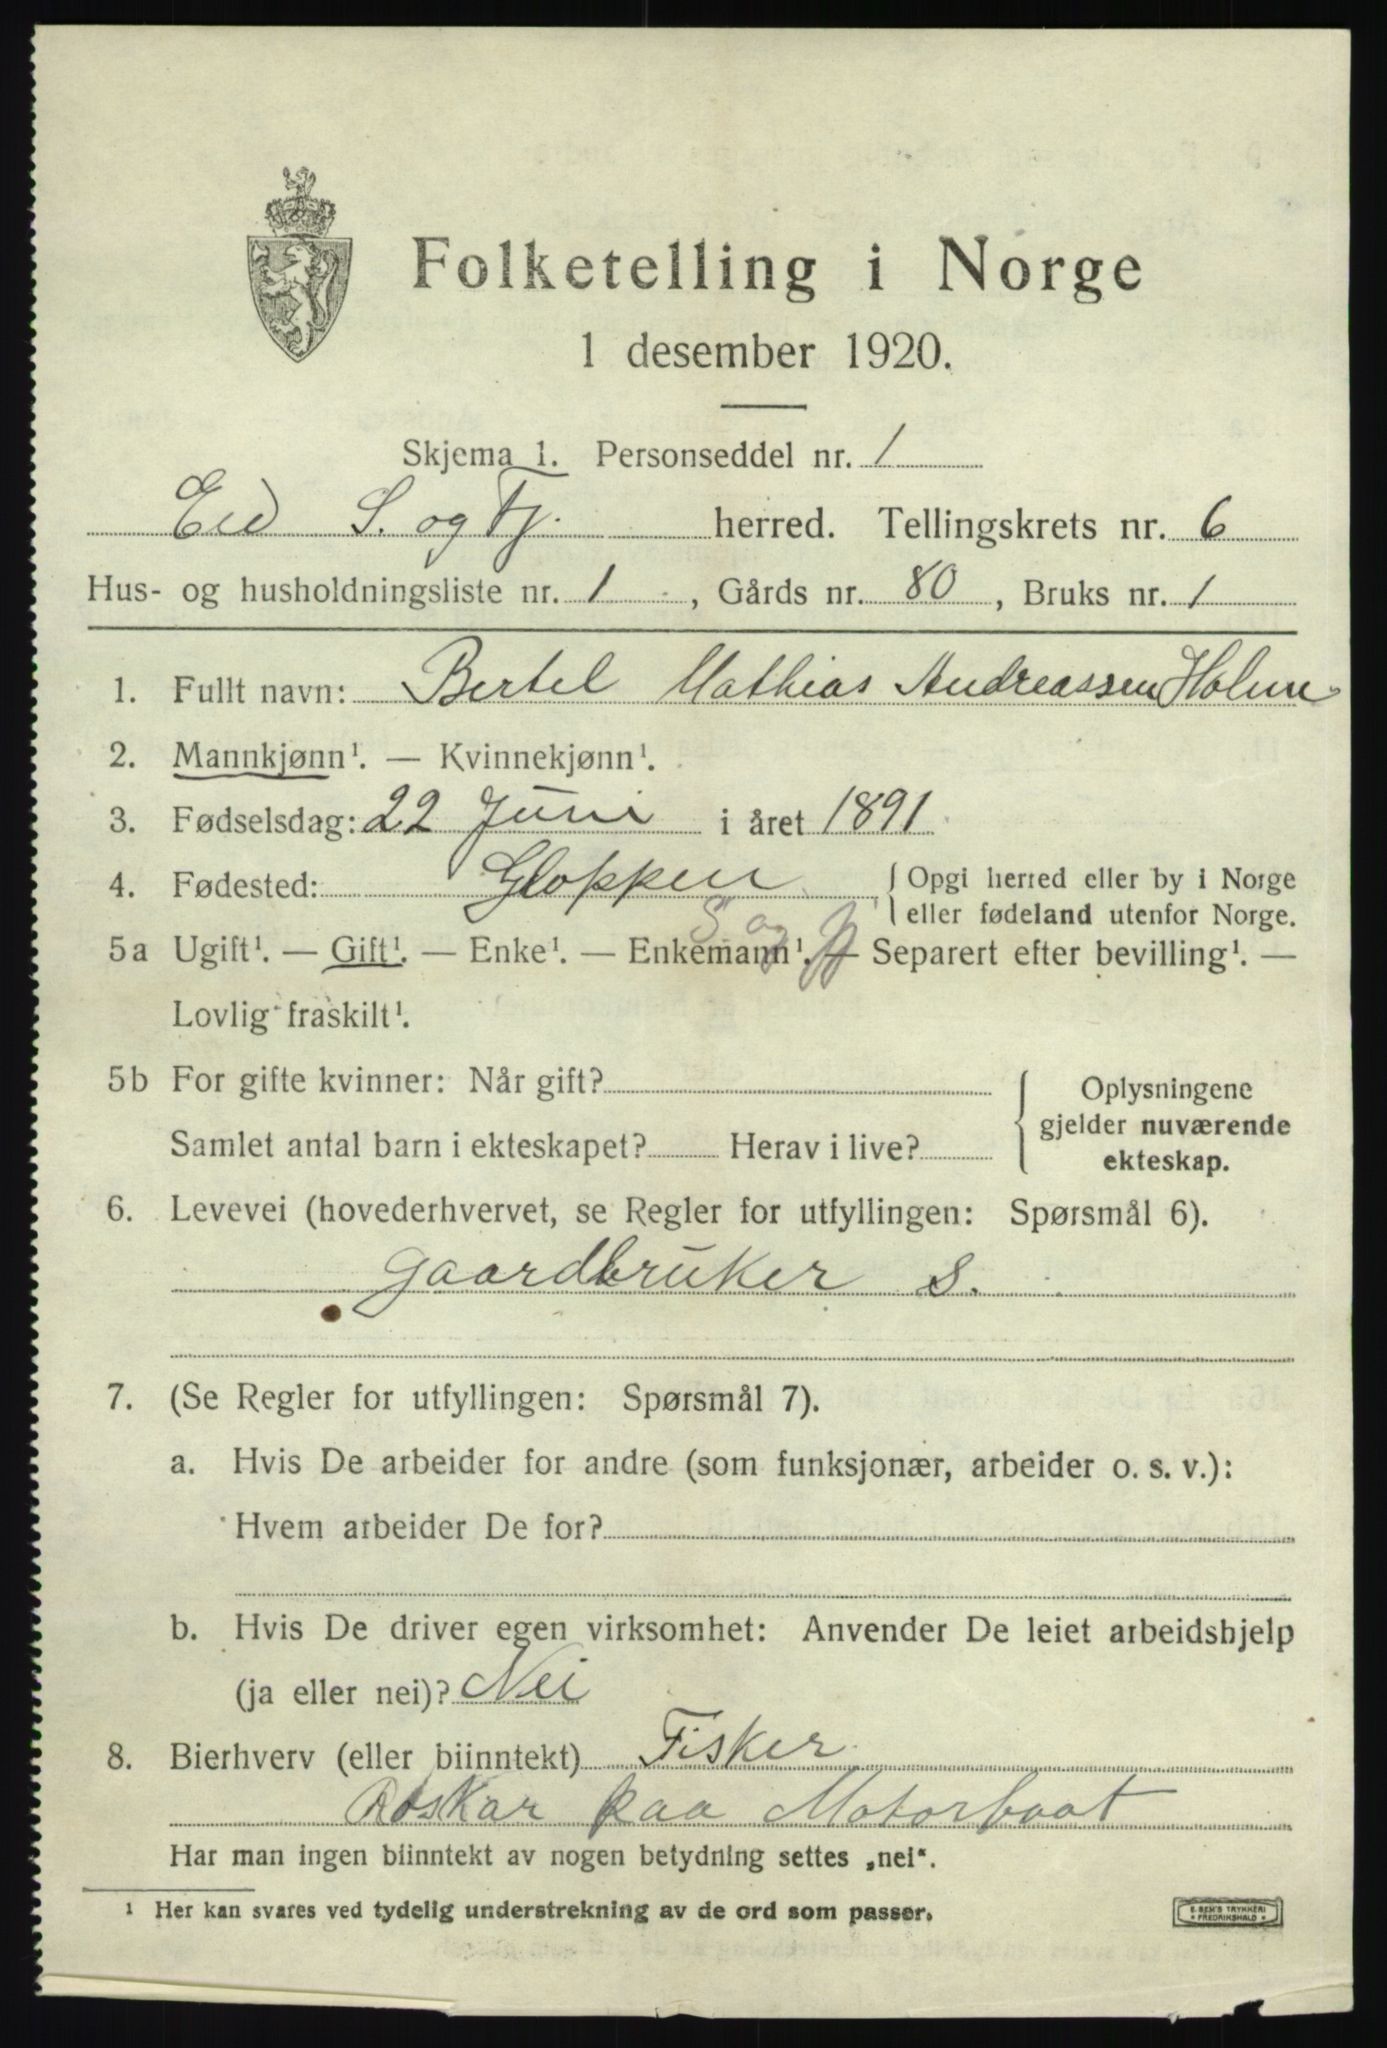 Folketelling i Norge
1 desember 1920.
Skjema 1. Personseddel nr. 1
Eid S. og Fj. herred. Tellingskrets nr. 6
Hus- og husholdningsliste nr. 1, Gårds nr. 80, Bruks nr. 1
1. Fullt navn: Bertel Mathias Andreassen Holme
2. Mannkjønn¹. — Kvinnekjønn¹.
3. Fødselsdag: 22 Juni i året 1891
4. Fødested: Gloppen { Opgi herred eller by i Norge
eller fødeland utenfor Norge.
S og Fj
5a Ugift¹. — Gift¹. — Enke¹. — Enkemann¹. — Separert efter bevilling¹. —
Lovlig fraskilt¹.
5b For gifte kvinner: Når gift?
Samlet antal barn i ekteskapet? Herav i live?
{ Oplysningene
gjelder nuværende
ekteskap.
6. Levevei (hovederhvervet, se Regler for utfyllingen: Spørsmål 6).
Gaardbruker S.
7. (Se Regler for utfyllingen: Spørsmål 7).
a. Hvis De arbeider for andre (som funksjonær, arbeider o. s. v.):
Hvem arbeider De for?
b. Hvis De driver egen virksomhet: Anvender De leiet arbeidshjelp
(ja eller nei)? Nei
8. Bierhverv (eller biinntekt) Fisker
paa Motorbaat
Har man ingen biinntekt av nogen betydning settes „nei“.
¹ Her kan svares ved tydelig understrekning av de ord som passer.
E. SEM'S TRYKKERI
FREDRIKSHALD